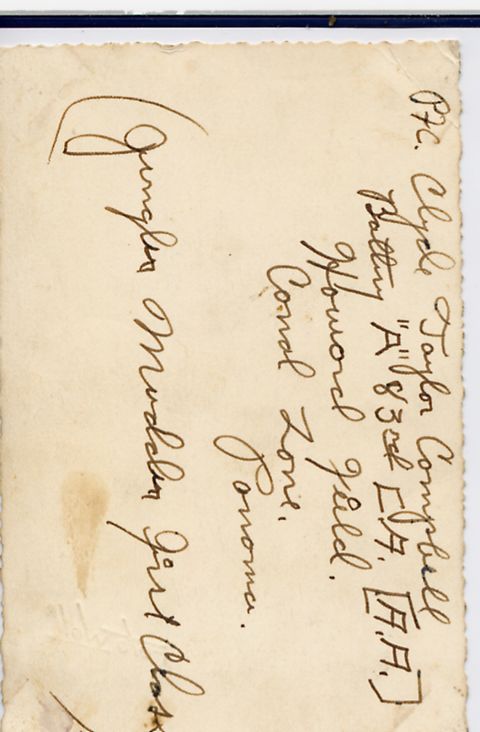 Pfc. Clyde Taylor Campbell
Battery "A" 83rd C.A. [A.A.]
Howard Field.
Canal Zone.
Panama.
(Jungler Mudder First Class